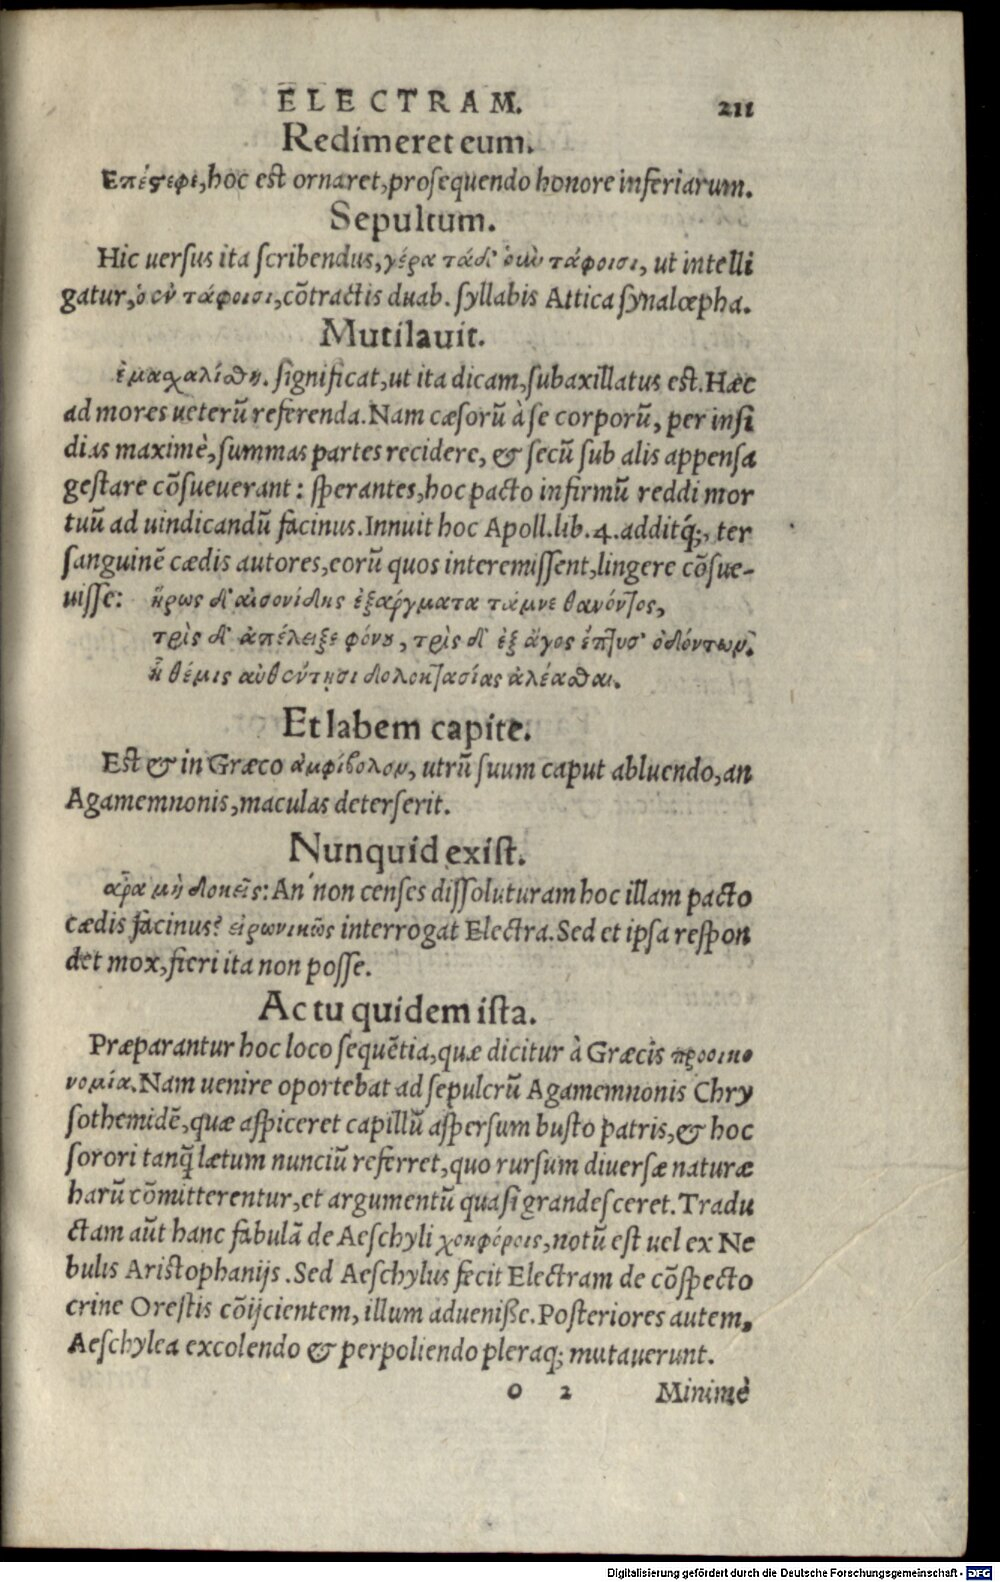 ELECTRAM. 211
Redimeret eum.
Επέστεφε, hoc est ornaret, prosequendo honore inferiarum.
Sepultum.
Hic uersus ita scribendus, γέρα τάδ' οὑν τάφοισι, ut intelli
gatur, ὁ ἐν τάφοισι, cõtractis duab. syllabis Attica synalœpha.
Mutilauit.
ἐμασχαλίσθη. significat, ut ita dicam, subaxillatus est. Hæc
ad mores ueterũ referenda. Nam cæsorũ à se corporũ, per insi
dias maximè, summas partes recidere, & secũ sub alis appensa
gestare cõsueuerant: sperantes, hoc pacto infirmũ reddi mor
tuũ ad uindicandũ facinus. Innuit hoc Apoll. lib. 4. additq́;, ter
sanguinẽ cædis autores, eorũ quos interemissent, lingere cõsue-
uisse: ἥρως δ' αἰσονίδης ἐξάργματα τάμνε θανόντος,
τρὶς δ' ἀπέλειξε φόνου, τρὶς δ' ἐξ ἄγος ἔπτυσ' ὀδόντων.
ἣ θέμις αὐθέντησι δολοκτασίας ἀλέασθαι.
Et labem capite.
Est & in Græco ἀμφίβολον, utrũ suum caput abluendo, an
Agamemnonis, maculas deterserit.
Nunquid exist.
αρα μὴ δοκεῖς: An' non censes dissoluturam hoc illam pacto
cædis facinus? εἰρωνικῶς interrogat Electra. Sed et ipsa respon
det mox, fieri ita non posse.
Ac tu quidem ista.
Præparantur hoc loco sequẽtia, quæ dicitur à Græcis προοικο
νομία. Nam uenire oportebat ad sepulcrũ Agamemnonis Chry
sothemidẽ, quæ aspiceret capillũ aspersum busto patris, & hoc
sorori tanq̃ lætum nunciũ referret, quo rursum diuersæ naturæ
harũ cõmitterentur, et argumentũ quasi grandesceret. Tradu
ctam aũt hanc fabulã de Aeschyli χοηφόροις, notũ est uel ex Ne
bulis Aristophanijs. Sed Aeschylus fecit Electram de cõspecto
crine Orestis cõijcientem, illum aduenisse. Posteriores autem,
Aeschylea excolendo & perpoliendo pleraq; mutauerunt.
o 2 Minimè
Digitalisierung gefördert durch die Deutsche Forschungsgemeinschaft - DFG